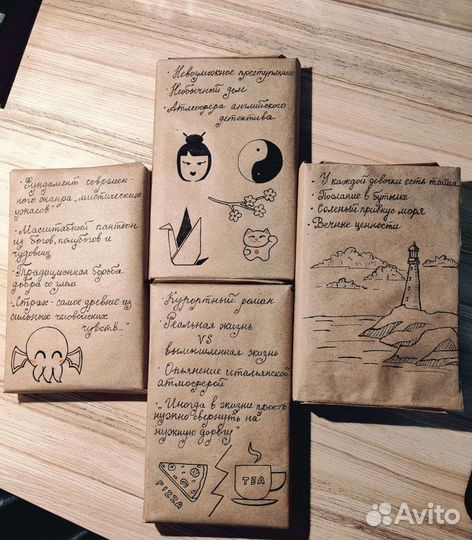 · Невозможное преступление
· Необычный дом
· Атмосфера английского
детектива
· Фундамент современ-
ного жанра „мистических
ужасов"
· Масштабный пантеон
из богов, полубогов и
чудовищ
· Традиционная борьба
добра со злом
· „Страх - самое древнее из
сильных человеческих
чувств..."
· У каждой девочки есть тайна
· Послание в бутылке
· Соленый привкус моря
· Вечные ценности
· Курортный роман
· Реальная жизнь
VS
вымышленная жизнь
· Опьянение итальянской
атмосферой
· „Иногда в жизни просто
нужно свернуть на
нужную дорогу"
PIZZA
TEA
Avito